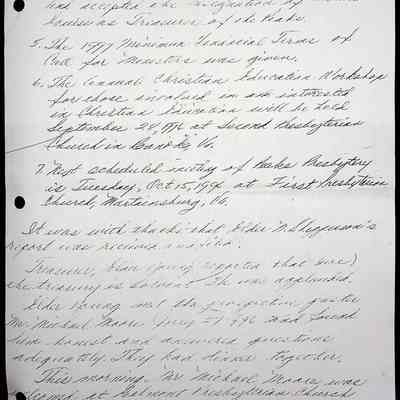 has accepted the resignation of
as Treasurer of the Peaks.
5. The 1997 Minimum Financial Terms of
Call for Ministers was given.
6. The Annual Christian Education Workshop
for those involved in or interested
in Christian Education will be held
September 28, 1996 at Second Presbyterian
Church in Roanoke, Va.
7. Next scheduled meeting of Peaks Presbytery
is Tuesday, Oct 15, 1996 at First Presbyterian
Church, Martinsville, Va.
It was with thanks that Elder N. Shepperson's
report was received and filed.
Treasurer, reported that
the treasury is solvent. She was applauded.
Elder Young met the prospective pastor
Mr. Michael Moore and found
him honest and answered questions
adequately. They had dinner together.
This morning, Mr. Michael Moore, was
at Presbyterian Church